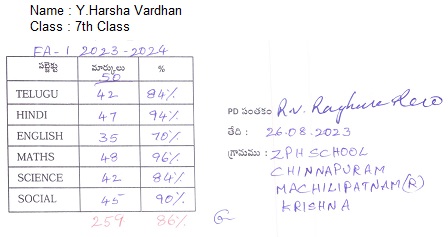 Name : Y.Harsha Vardhan
Class : 7th Class
FA-1 2023-2024
సబ్జెక్టు మార్కులు %
50
TELUGU 42 84%
HINDI 47 94%
ENGLISH 35 70%
MATHS 48 96%
SCIENCE 42 84%
SOCIAL 45 90%
259 86%
PD సంతకం R.V. Raghava Rao
తేది : 26.08.2023
గ్రామము : ZPH SCHOOL
CHINNAPURAM
MACHILIPATNAM (R)
KRISHNA